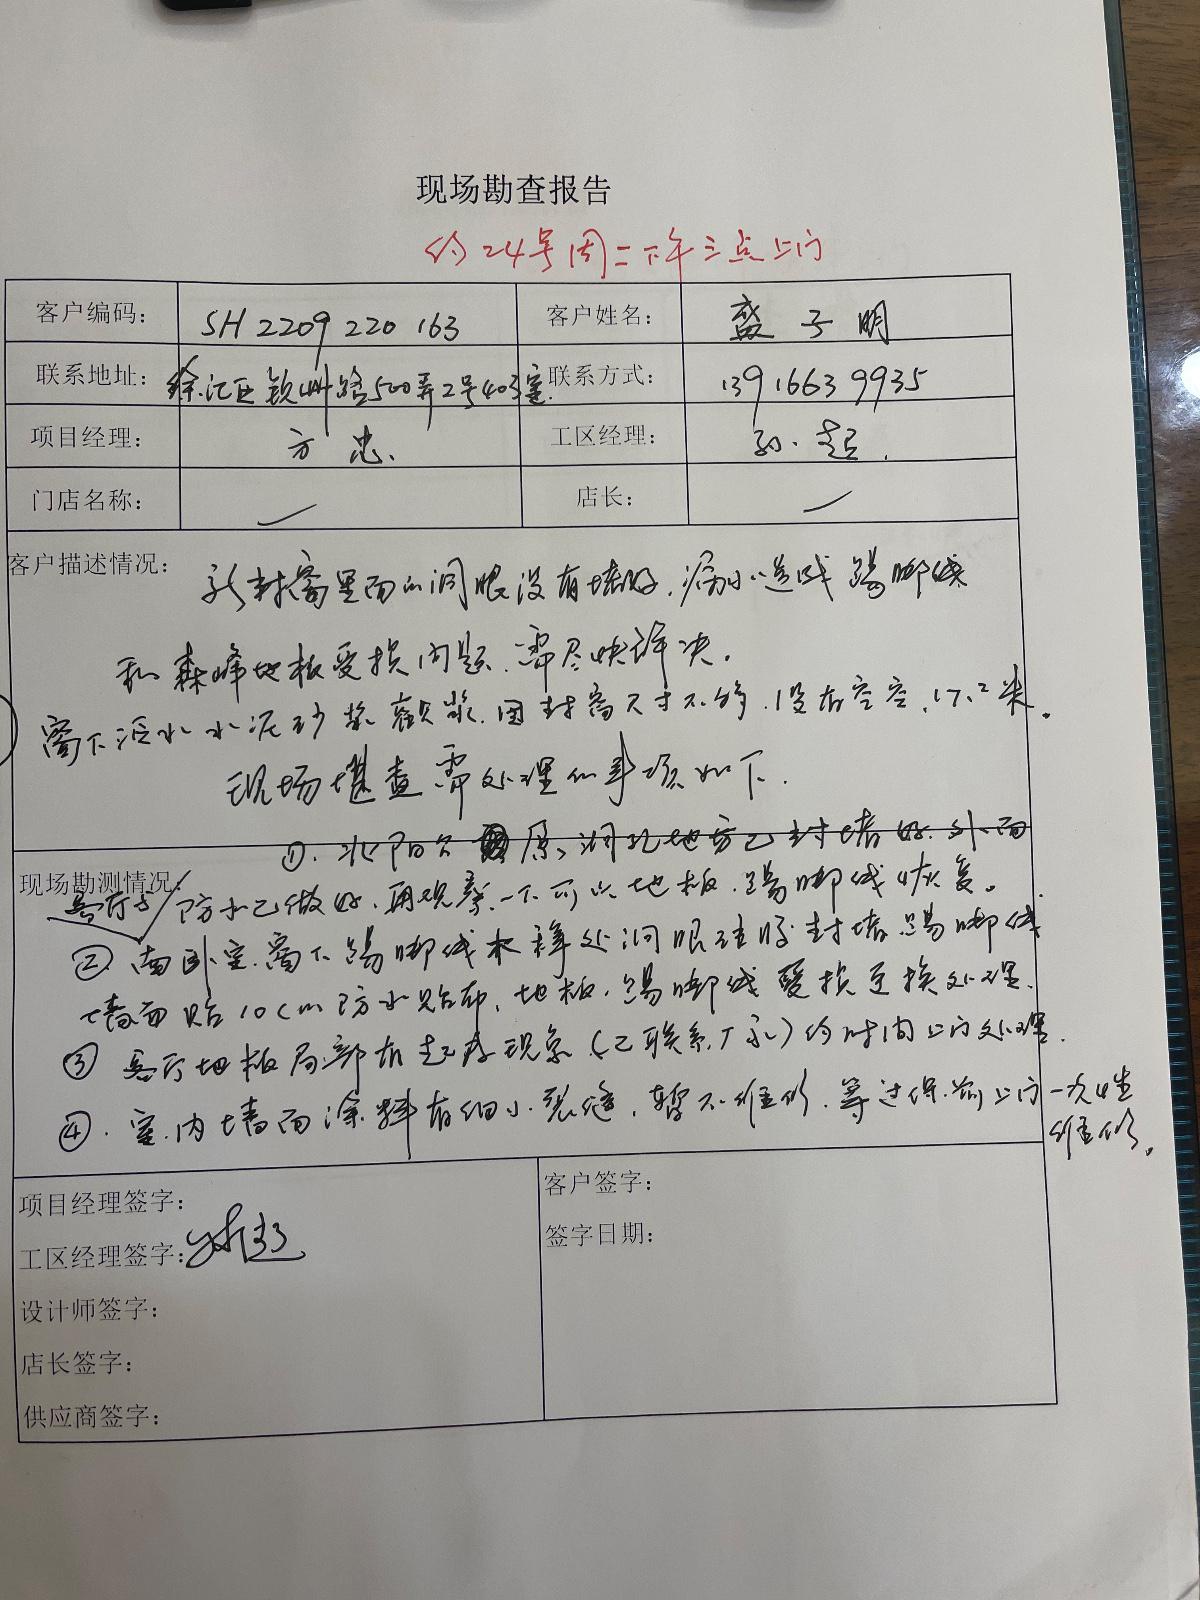 现场勘查报告
约24号周二下午三点上门
客户编码： SH2209220163 客户姓名： 盛子明
联系地址： 徐汇区钦州路500弄2号403室 联系方式： 13916639935
项目经理： 方忠 工区经理： 孙超
门店名称： 店长：
客户描述情况： 新封窗里面的洞眼没有堵好，漏水造成踢脚线
和森峰地板受损问题，需尽快解决。
窗下泛水水泥砂浆 因封窗尺寸不够，没有 米。
现场堪查需处理的事项如下
①. 北阳台 原洞孔地方已封堵好，外面
现场勘测情况：
客厅 防水已做好，再观察一下可以地板，踢脚线恢复。
②南卧室，窗下踢脚线 处洞眼硅胶封堵，踢脚线
墙面贴10cm防水贴布，地板，踢脚线受损更换处理
③客厅地板局部有起 现象（已联系厂家）约时间上门处理
④. 室内墙面涂料有细小裂缝，暂不维修，等过保前上门一次性
维修。
项目经理签字： 客户签字：
工区经理签字： 签字日期：
设计师签字：
店长签字：
供应商签字：